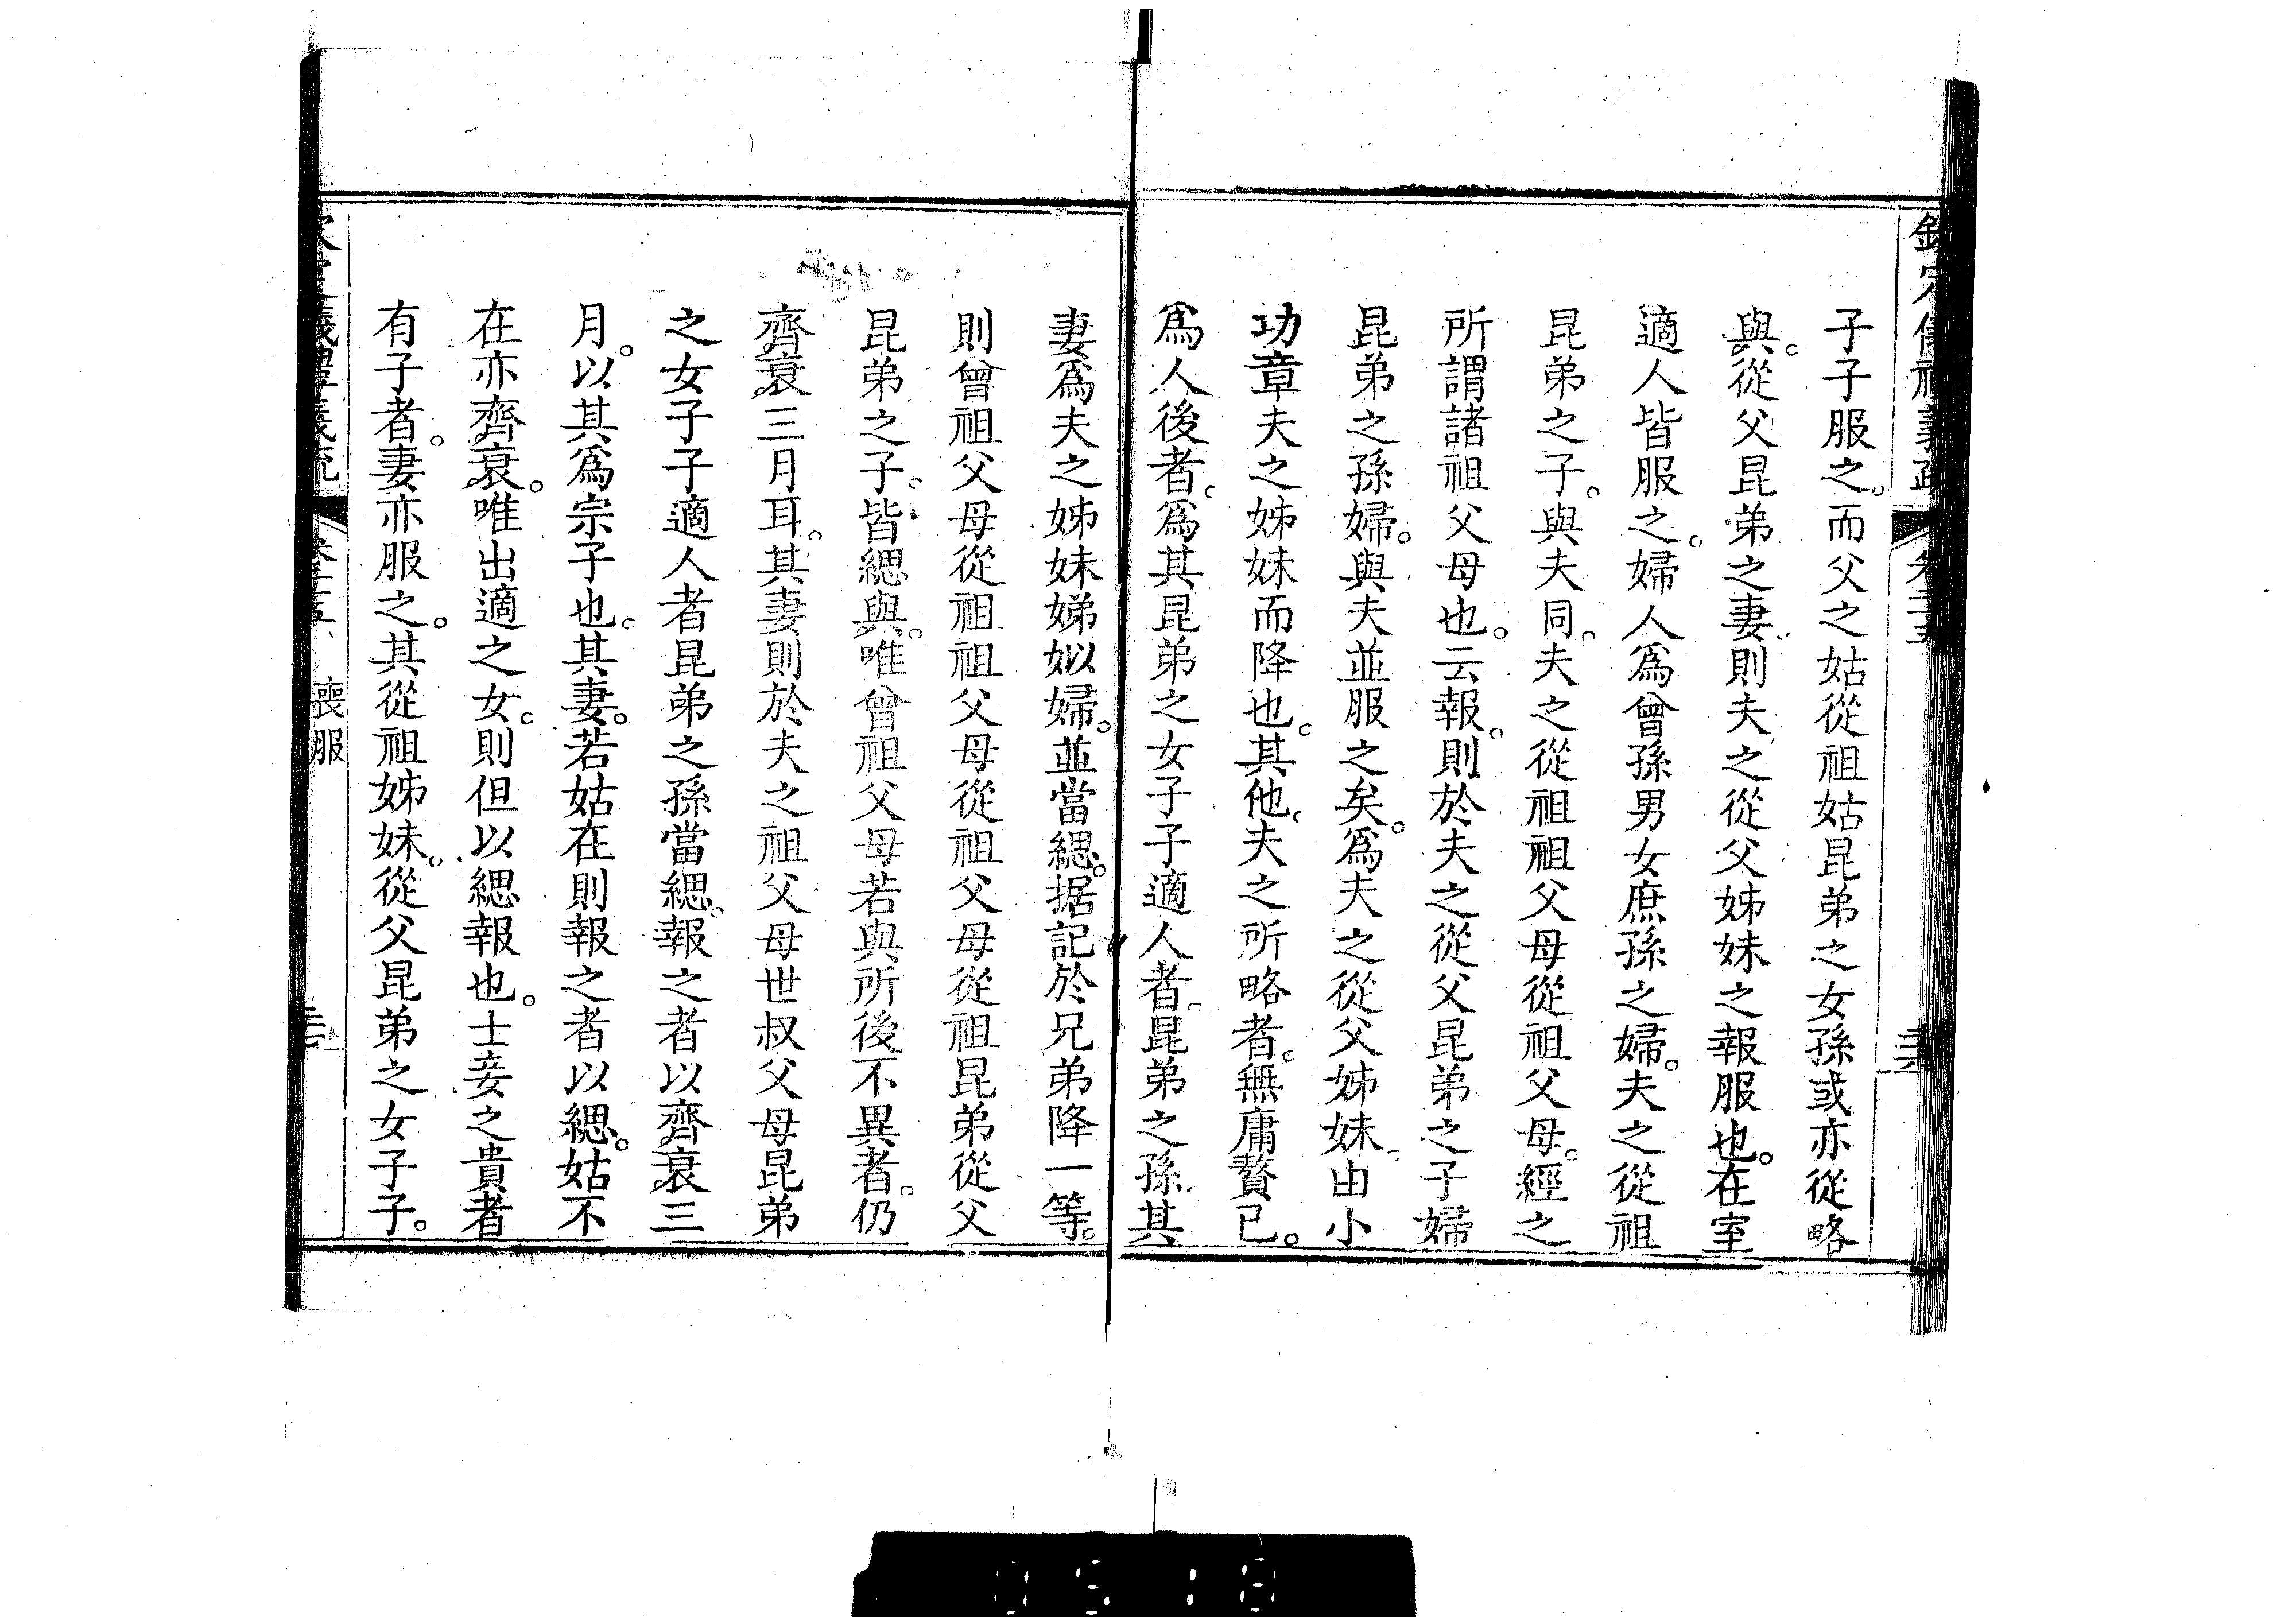 欽定儀禮義疏 卷二十五
子子服之。而父之姑從祖姑昆弟之女孫或亦從略
與。從父昆弟之妻。則夫之從父姊妹之報服也。在室
適人皆服之。婦人爲曾孫男女庶孫之婦。夫之從祖
昆弟之子。與夫同。夫之從祖祖父母從祖父母。經之
所謂諸祖父母也。云報。則於夫之從父昆弟之子婦
昆弟之孫婦。與夫並服之矣。爲夫之從父姊妹。由小
功章夫之姊妹而降也。其他。夫之所略者。無庸贅已。
爲人後者。爲其昆弟之女子子適人者。昆弟之孫。其
妻爲夫之姊妹娣姒婦。並當緦。据記於兄弟降一等。
則曾祖父母從祖祖父母從祖父母從祖昆弟從父
昆弟之子。皆緦與。唯曾祖父母若與所後不異者。仍
齊衰三月耳。其妻則於夫之祖父母世叔父母昆弟
之女子子適人者昆弟之孫當緦。報之者以齊衰三
月。以其爲宗子也。其妻。若姑在則報之者以緦。姑不
在亦齊衰。唯出適之女。則但以緦報也。士妾之貴者
有子者。妻亦服之。其從祖姊妹。從父昆弟之女子子。
儀禮義疏 卷二十五 喪服
0518